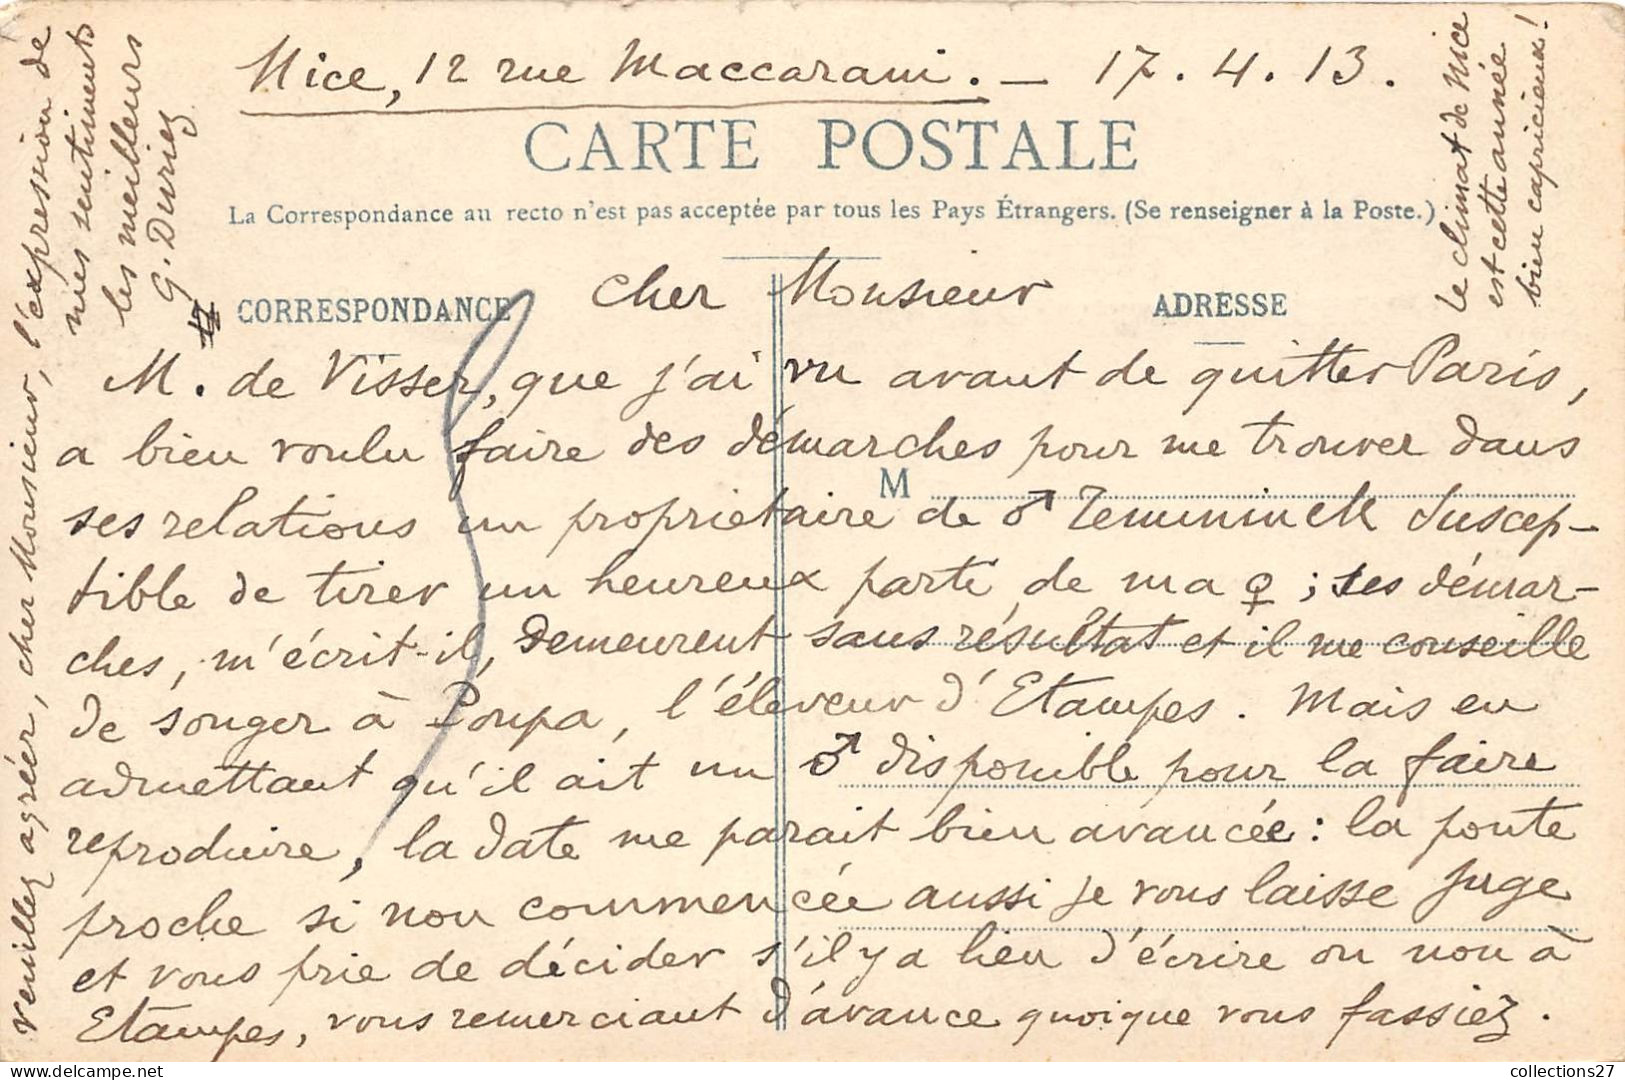 Nice, 12 rue Maccarani. — 17. 4. 13.
CARTE POSTALE
La Correspondance au recto n'est pas acceptée par tous les Pays Étrangers. (Se renseigner à la Poste.)
CORRESPONDANCE
ADRESSE
Cher Monsieur
M. de Visser, que j'ai vu avant de quitter Paris,
a bien voulu faire des démarches pour me trouver dans
M
ses relations un propriétaire de ♂ Temminck suscep-
tible de tirer un heureux parti de ma ♀ ; ses démar-
ches, m'écrit-il, demeurent sans résultat et il me conseille
de songer à Poupa, l'éleveur d'Etampes. Mais en
admettant qu'il ait un ♂ disponible pour la faire
reproduire, la date me parait bien avancée : la ponte
proche si non commencée aussi je vous laisse juge
et vous prie de décider s'il y a lieu d'écrire ou non à
Etampes, vous remerciant d'avance quoique vous fassiez.
Veuillez agréer, cher Monsieur, l'expression de
mes sentiments
les meilleurs
G. Duriez
Le climat de Nice
est cette année
bien capricieux!
collections27